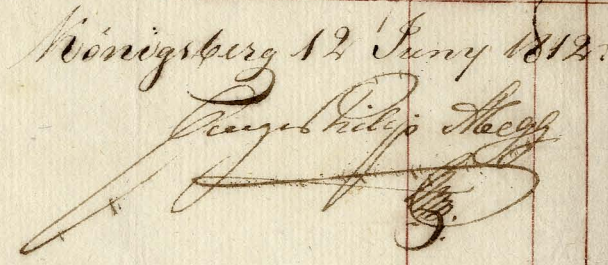 Königsberg 12 Juny 1812.
George Philip Abegg